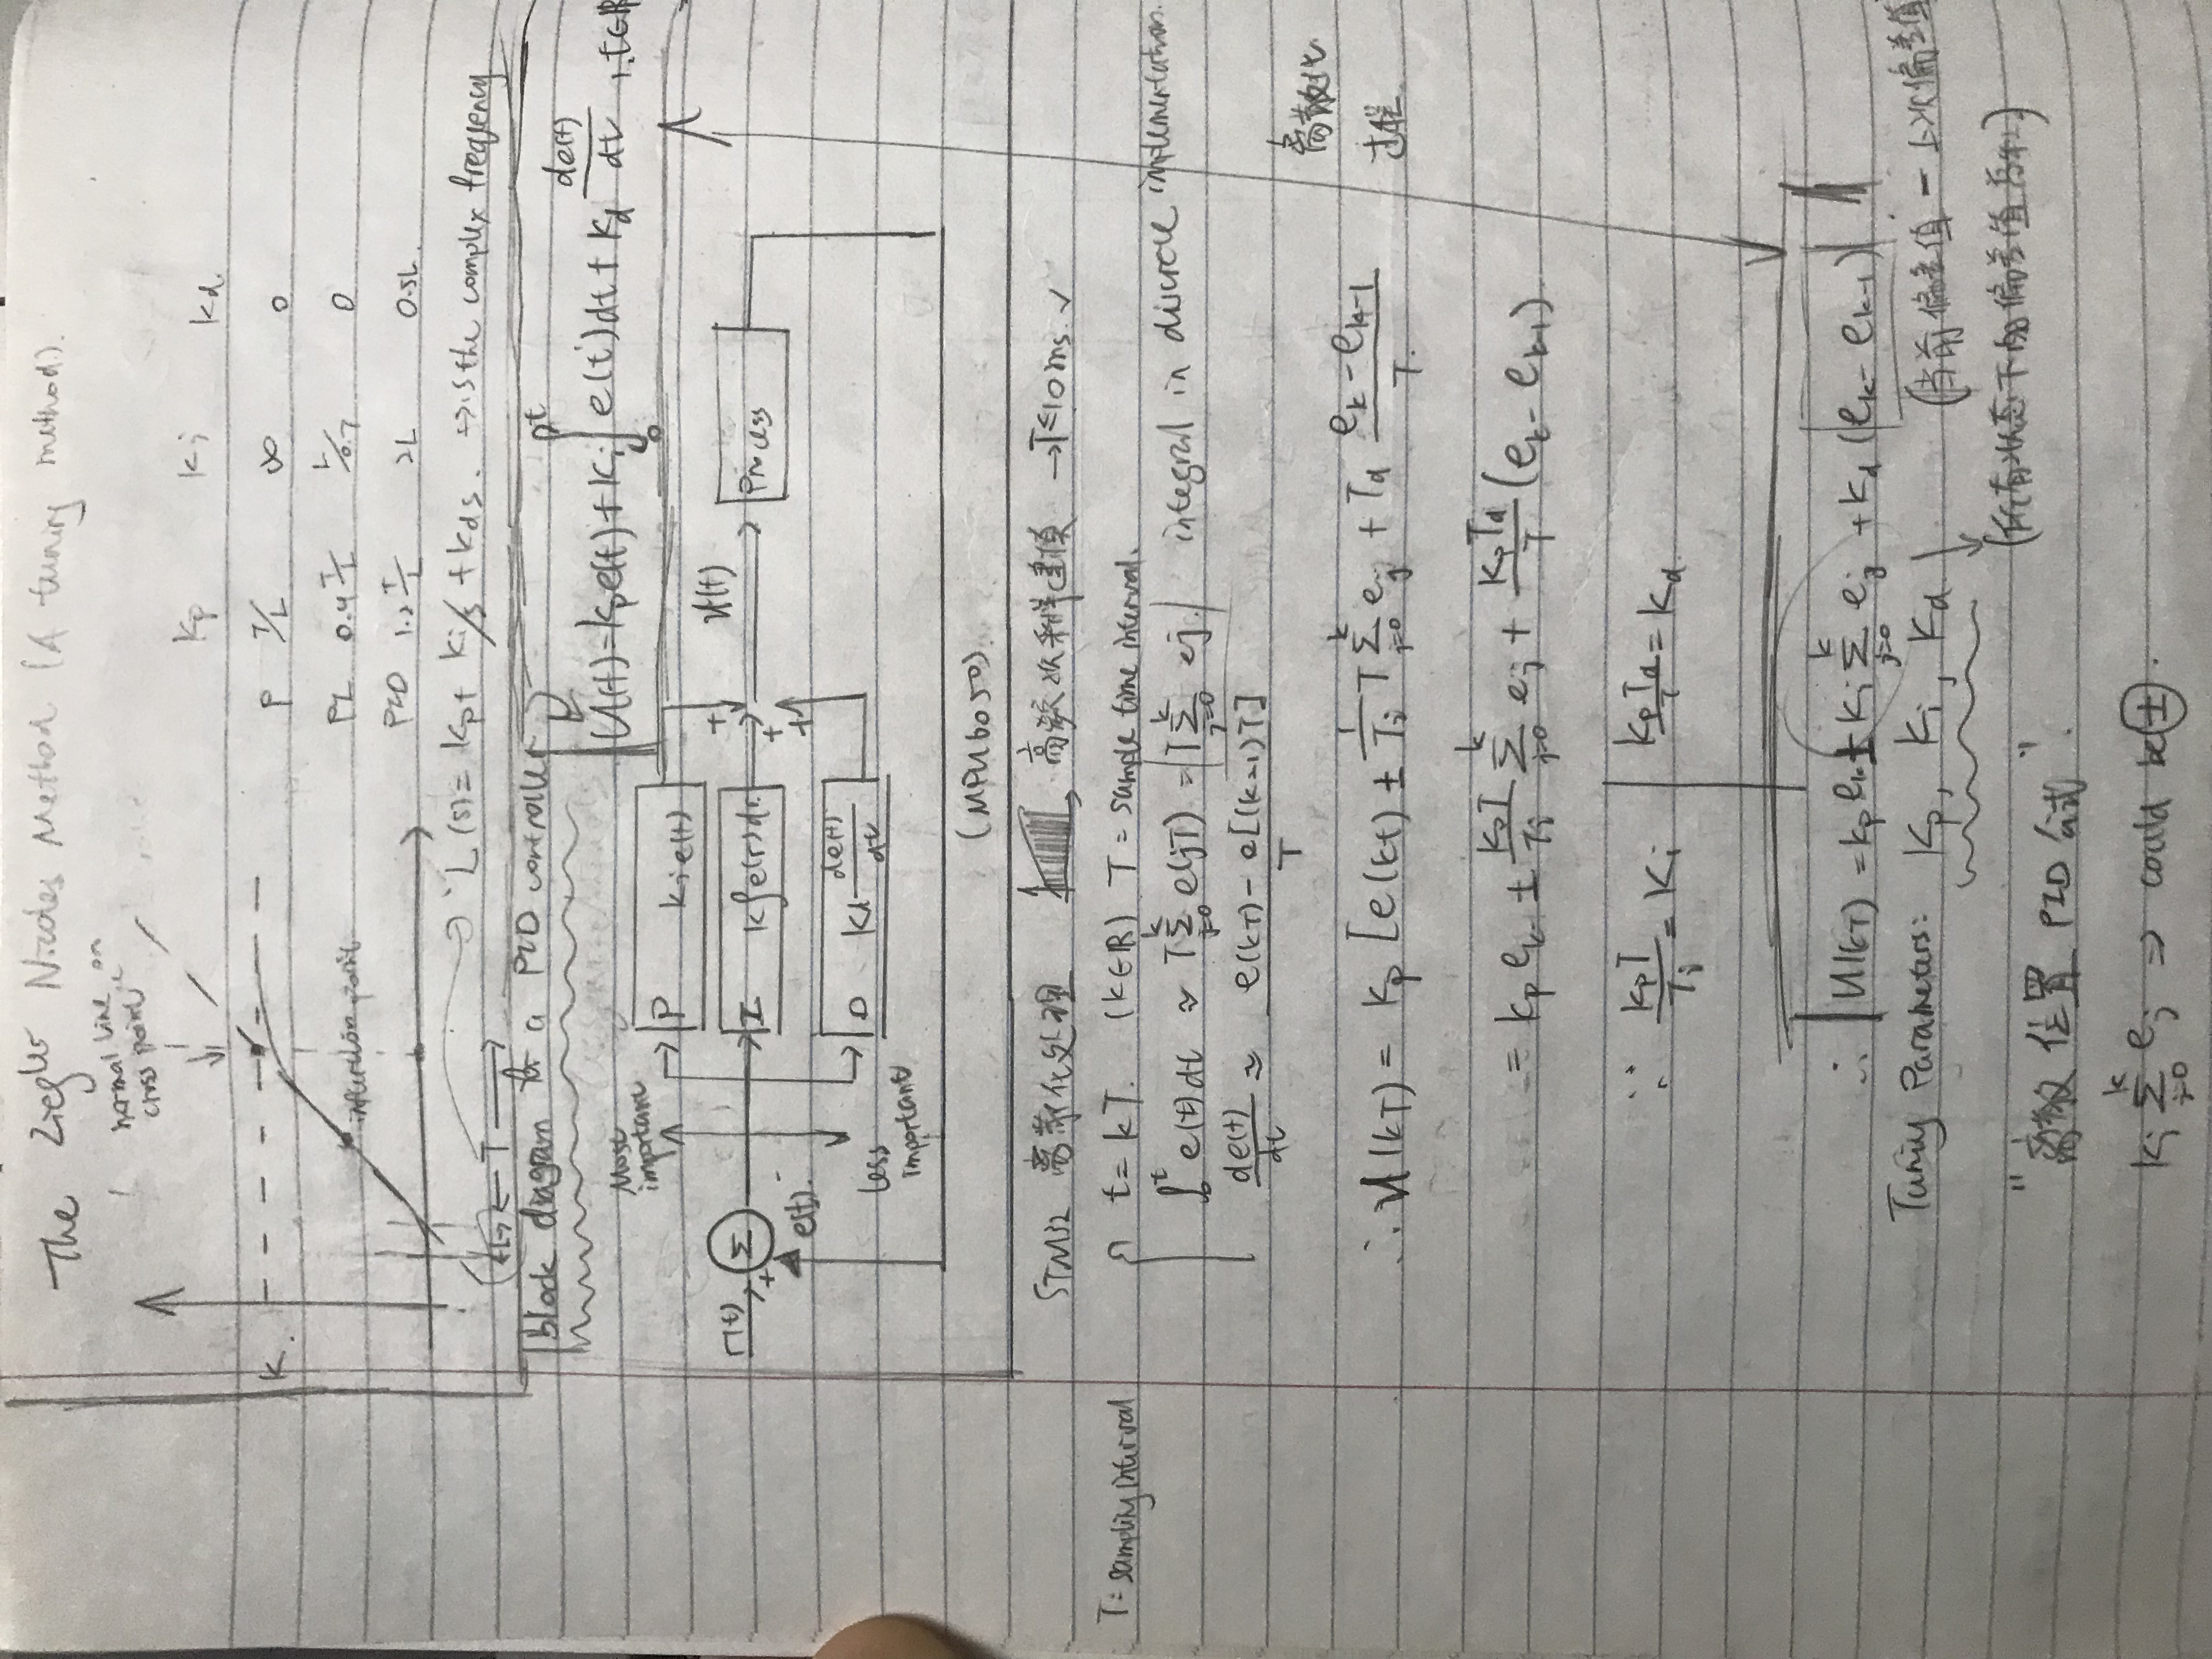 The Ziegler Nicoles Method (A tuning method).
normal line on
cross point
K.
inflection point
L T
Kp Ki Kd.
P T/L ∞ 0
PI 0.4 T/L L/0.7 0
PID 1.2 T/L 2L 0.5L.
L(s) = Kp + Ki/s + Kds. → s the complex frequency
block diagram for a PID controller
U(t) = Kp e(t) + Ki ∫₀ᵗ e(t') dt + Kd de(t)/dt , t∈R
Most
important
P Ki e(t)
r(t) + Σ I K∫e(τ)dτ + + + U(t) Process
e(t).
D Kd de(t)/dt
Less
important
(MPU6050).
STM32 离散化处理 高频次采样建模 → T≤10ms. ✓
T = sampling interval
t = kT. (k∈R) T = sample time interval.
∫₀ᵗ e(t)dt ≈ T Σ_{j=0}^{k} e(jT) = T Σ_{j=0}^{k} ej. integral in discrete implementation.
de(t)/dt ≈ (e(kT) - e[(k-1)T])/T
离散化
过程
∴ U(kT) = Kp [e(kt) ± 1/Ti T Σ_{j=0}^{k} ej + Td (ek - ek-1)/T.
= Kp ek ± KpT/Ti Σ_{j=0}^{k} ej + KpTd/T (ek - ek-1)
∵ KpT/Ti = Ki | KpTd/T = Kd.
∴ U(kT) = Kp ek ± Ki Σ_{j=0}^{k} ej + Kd (ek - ek-1)
Tuning Parameters: Kp, Ki, Kd (当前偏差值 - 上次偏差值
(所有状态下的偏差值总和)
"离散位置 PID 公式".
Ki Σ_{j=0}^{k} ej ⇒ could be ±.